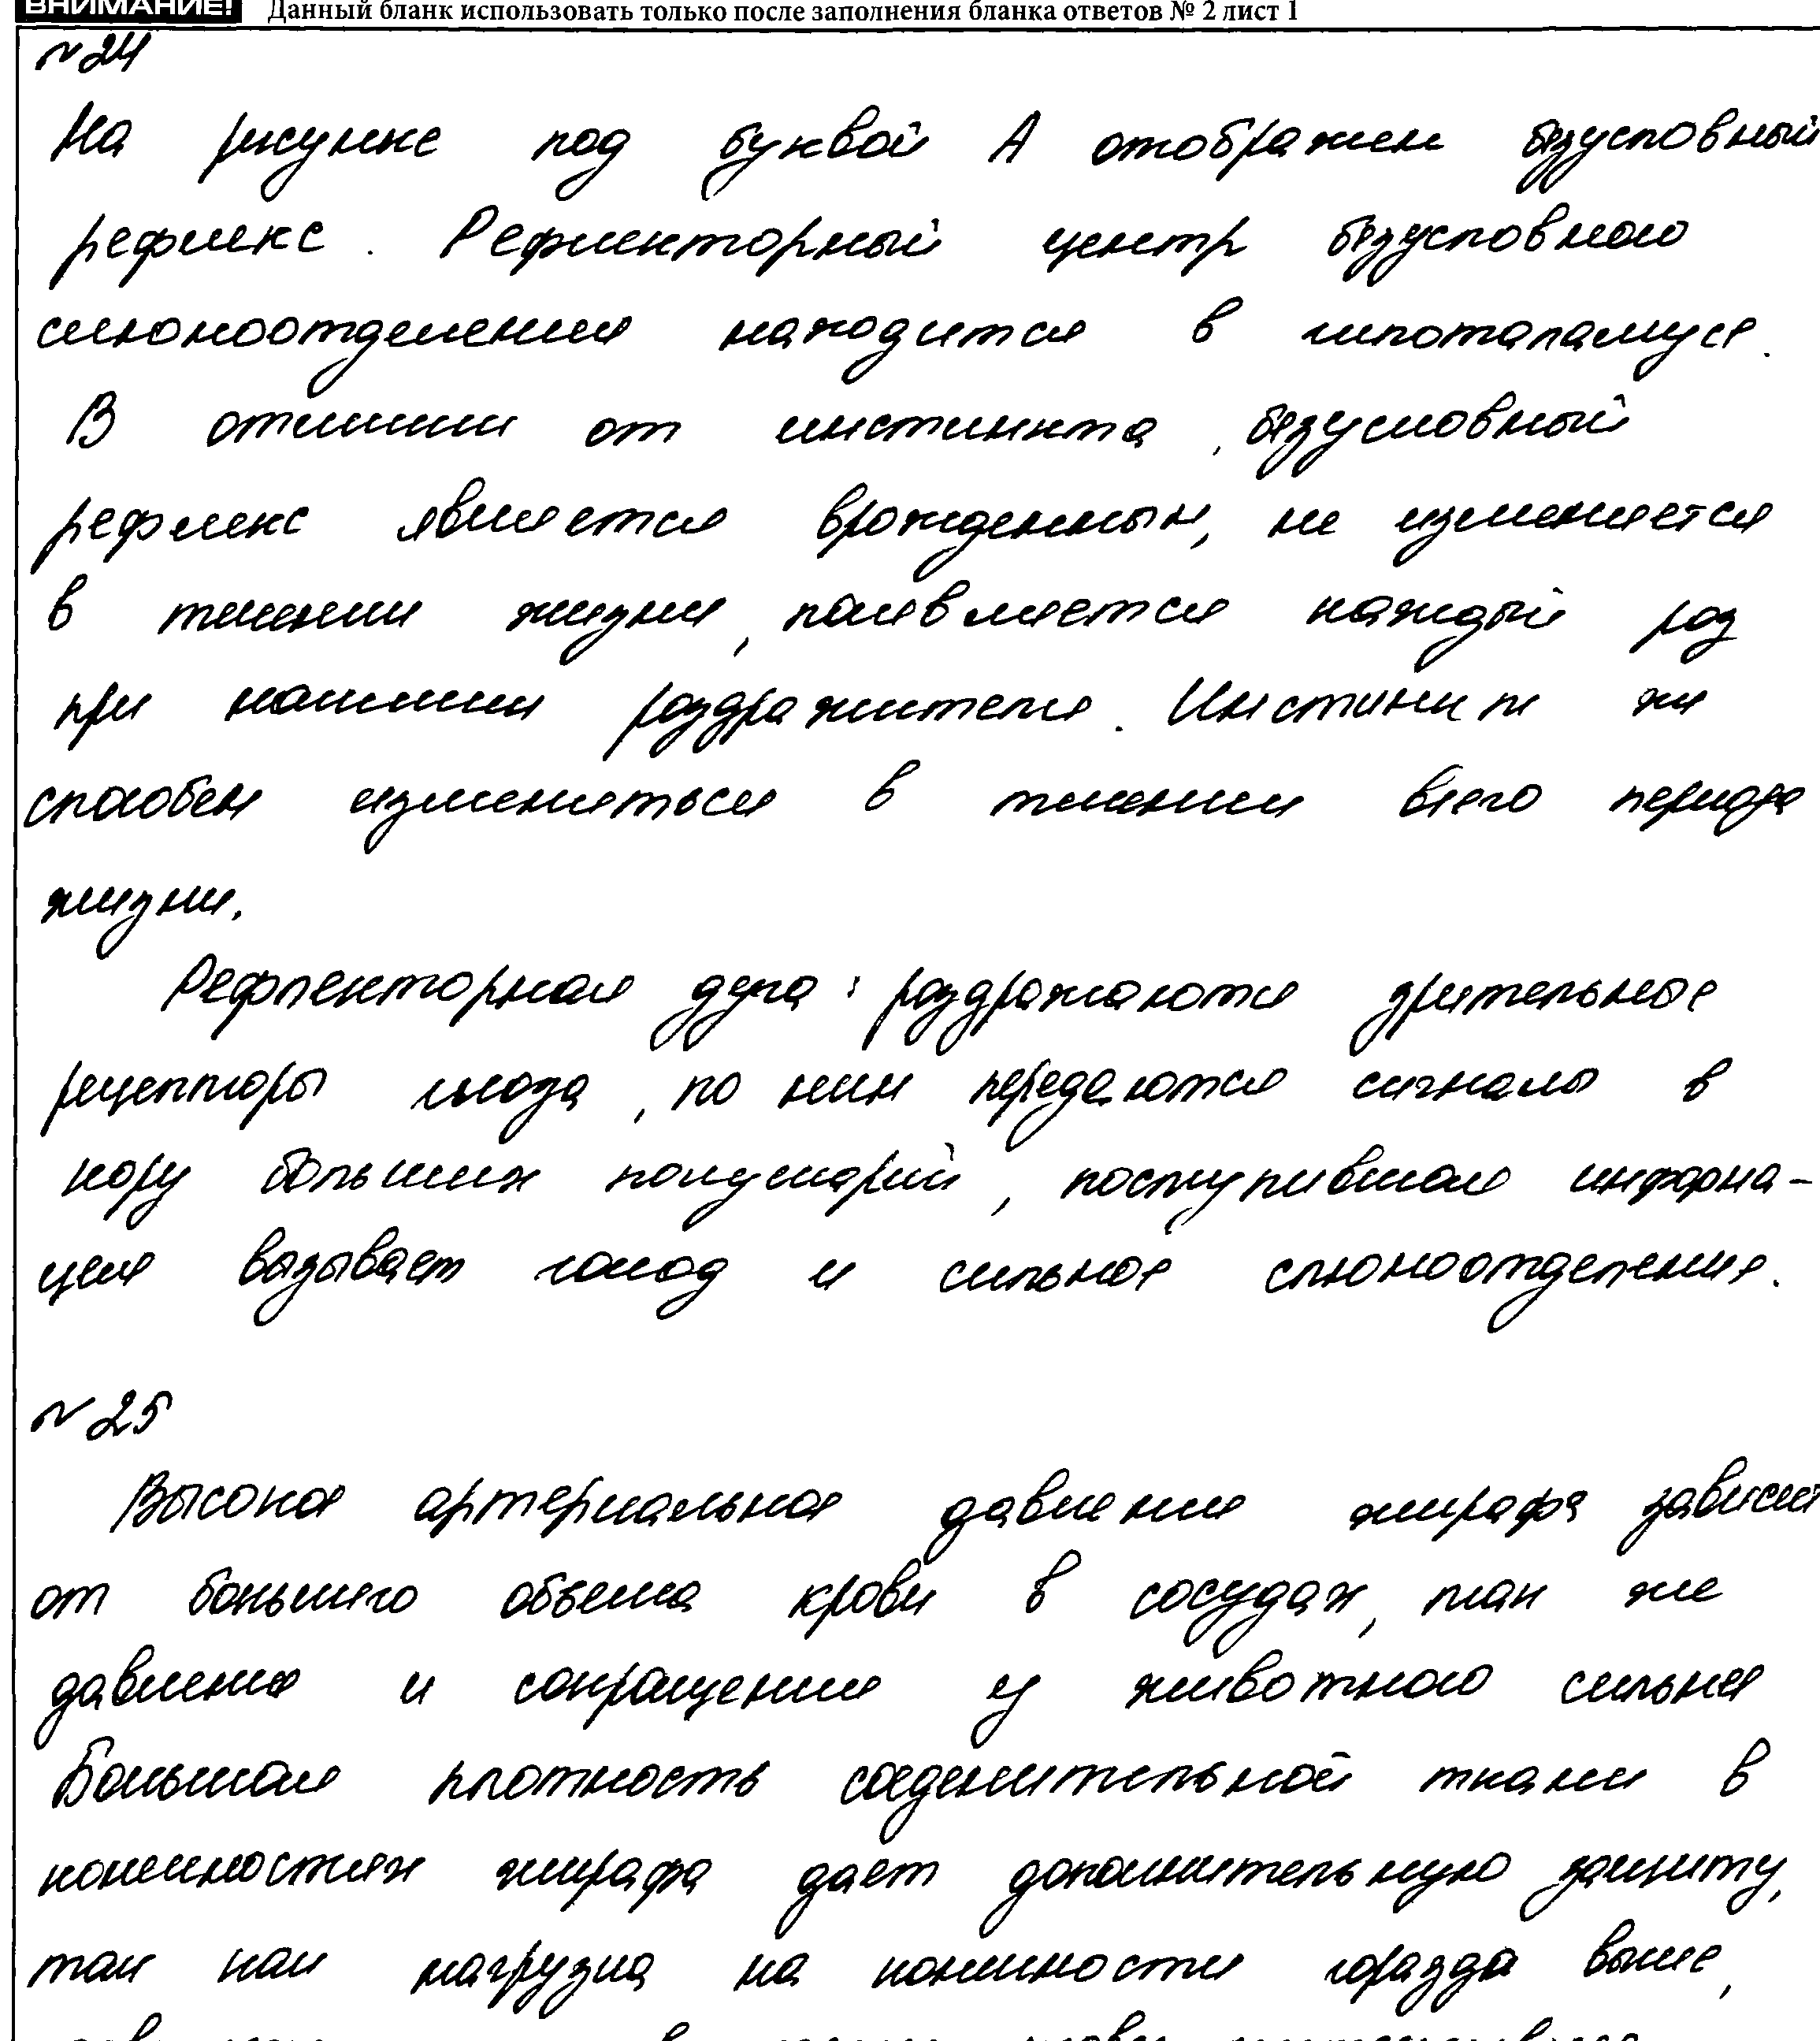 ВНИМАНИЕ! Данный бланк использовать только после заполнения бланка ответов № 2 лист 1
№24
На рисунке под буквой А отображен безусловный
рефлекс. Рефлекторный центр безусловного
слюноотделения находится в гипоталамусе.
В отличии от инстинкта, безусловный
рефлекс является врожденным, не изменяется
в течении жизни, появляется каждый раз
при наличии раздражителя. Инстинкт же
способен изменяться в течении всего периода
жизни.
Рефлекторная дуга: раздражаются зрительные
рецепторы глаза, по ним передаются сигналы в
кору больших полушарий, поступившая информа-
ция вызывает голод и сильное слюноотделение.
№25
Высокое артериальное давление жирафа зависит
от большего объема крови в сосудах, так же
давление и сокращение у животного сильнее
Большая плотность соеденительной ткани в
конечностях жирафа дает дополнительную защиту,
так как нагрузка на конечности горазда выше,